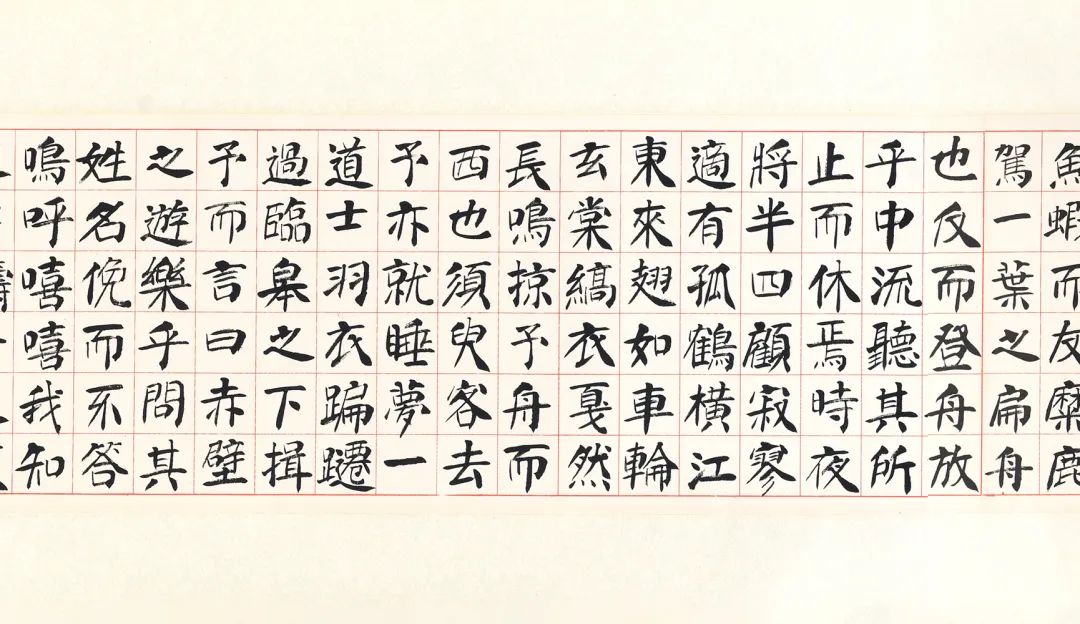 魚蝦而友麋鹿
駕一葉之扁舟
也反而登舟放
乎中流聽其所
止而休焉時夜
將半四顧寂寥
適有孤鶴橫江
東來翅如車輪
玄裳縞衣戛然
長鳴掠予舟而
西也須臾客去
予亦就睡夢一
道士羽衣蹁躚
過臨皋之下揖
予而言曰赤壁
之遊樂乎問其
姓名俛而不答
鳴呼嘻嘻我知